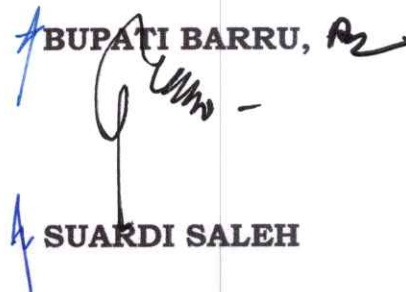 BUPATI BARRU,
SUARDI SALEH